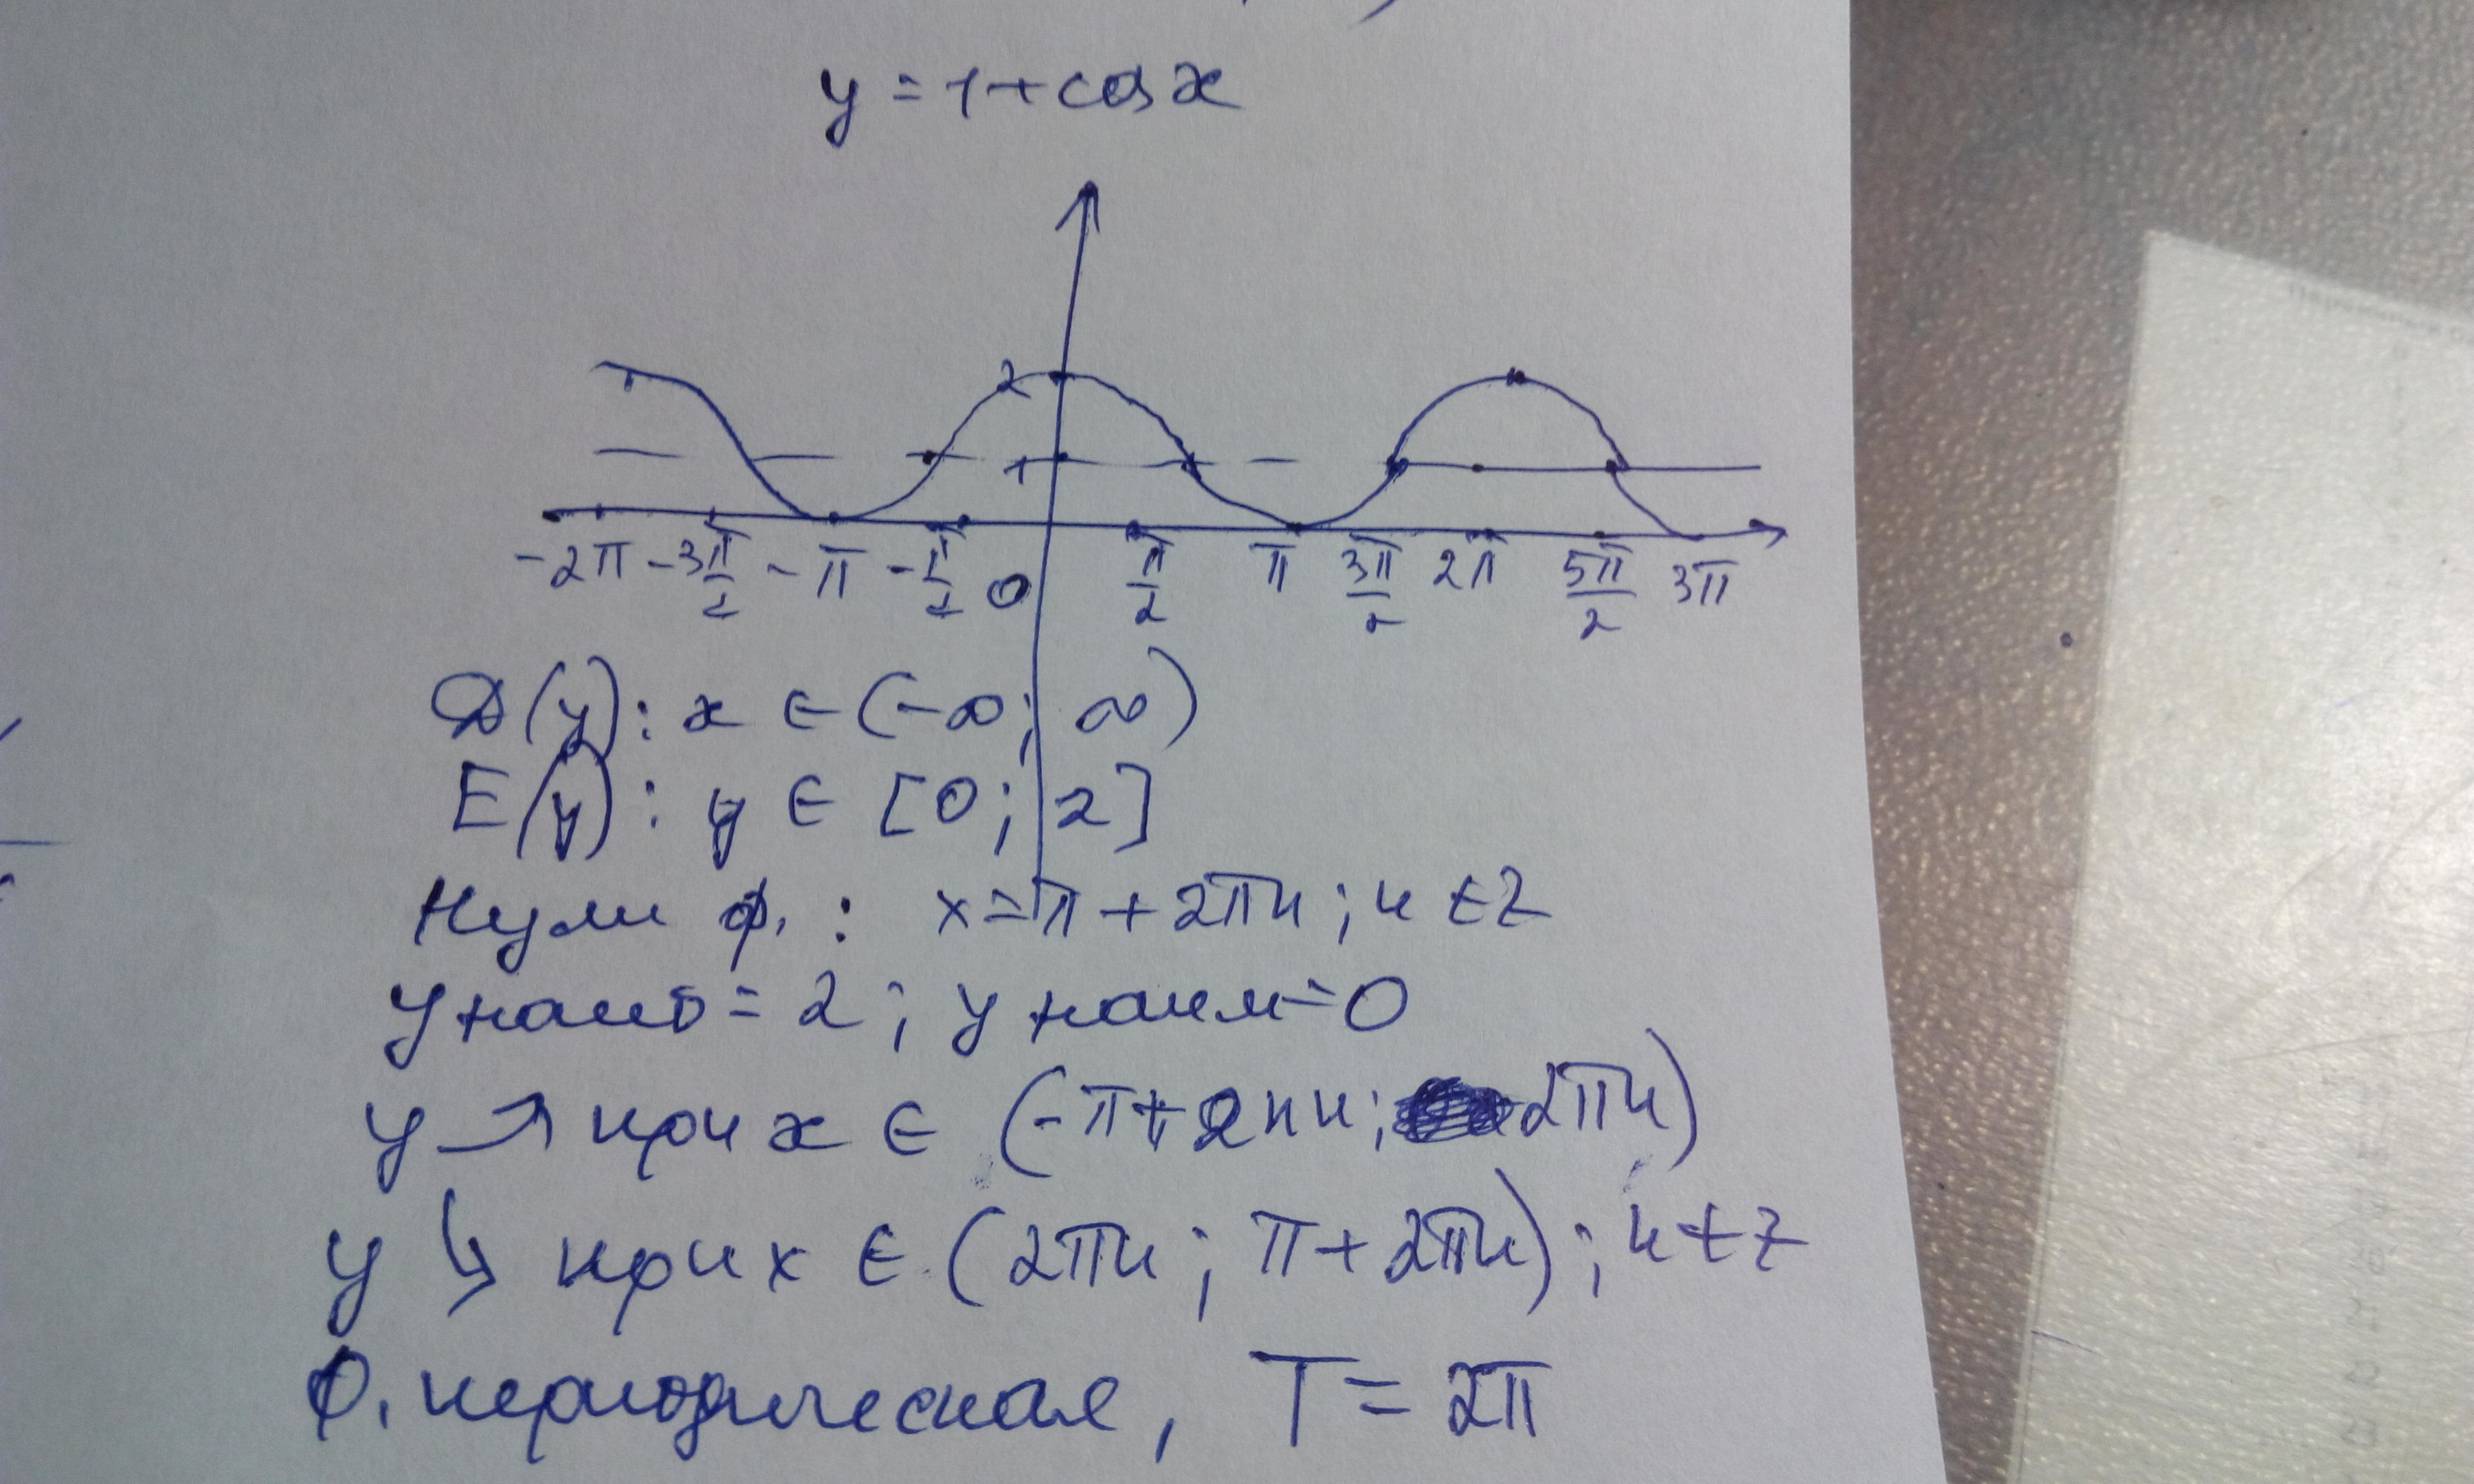 y = 1 + cos x
2
1
-2π -3π/2 -π -π/2 0 π/2 π 3π/2 2π 5π/2 3π
D(y): x ∈ (-∞; ∞)
E(y): y ∈ [0; 2]
Нули ф. : x = π + 2πn; n ∈ Z
y наиб = 2; y наим = 0
y ↗ при x ∈ (-π + 2πn; 2πn)
y ↘ при x ∈ (2πn; π + 2πn); n ∈ Z
Ф. периодическая, T = 2π